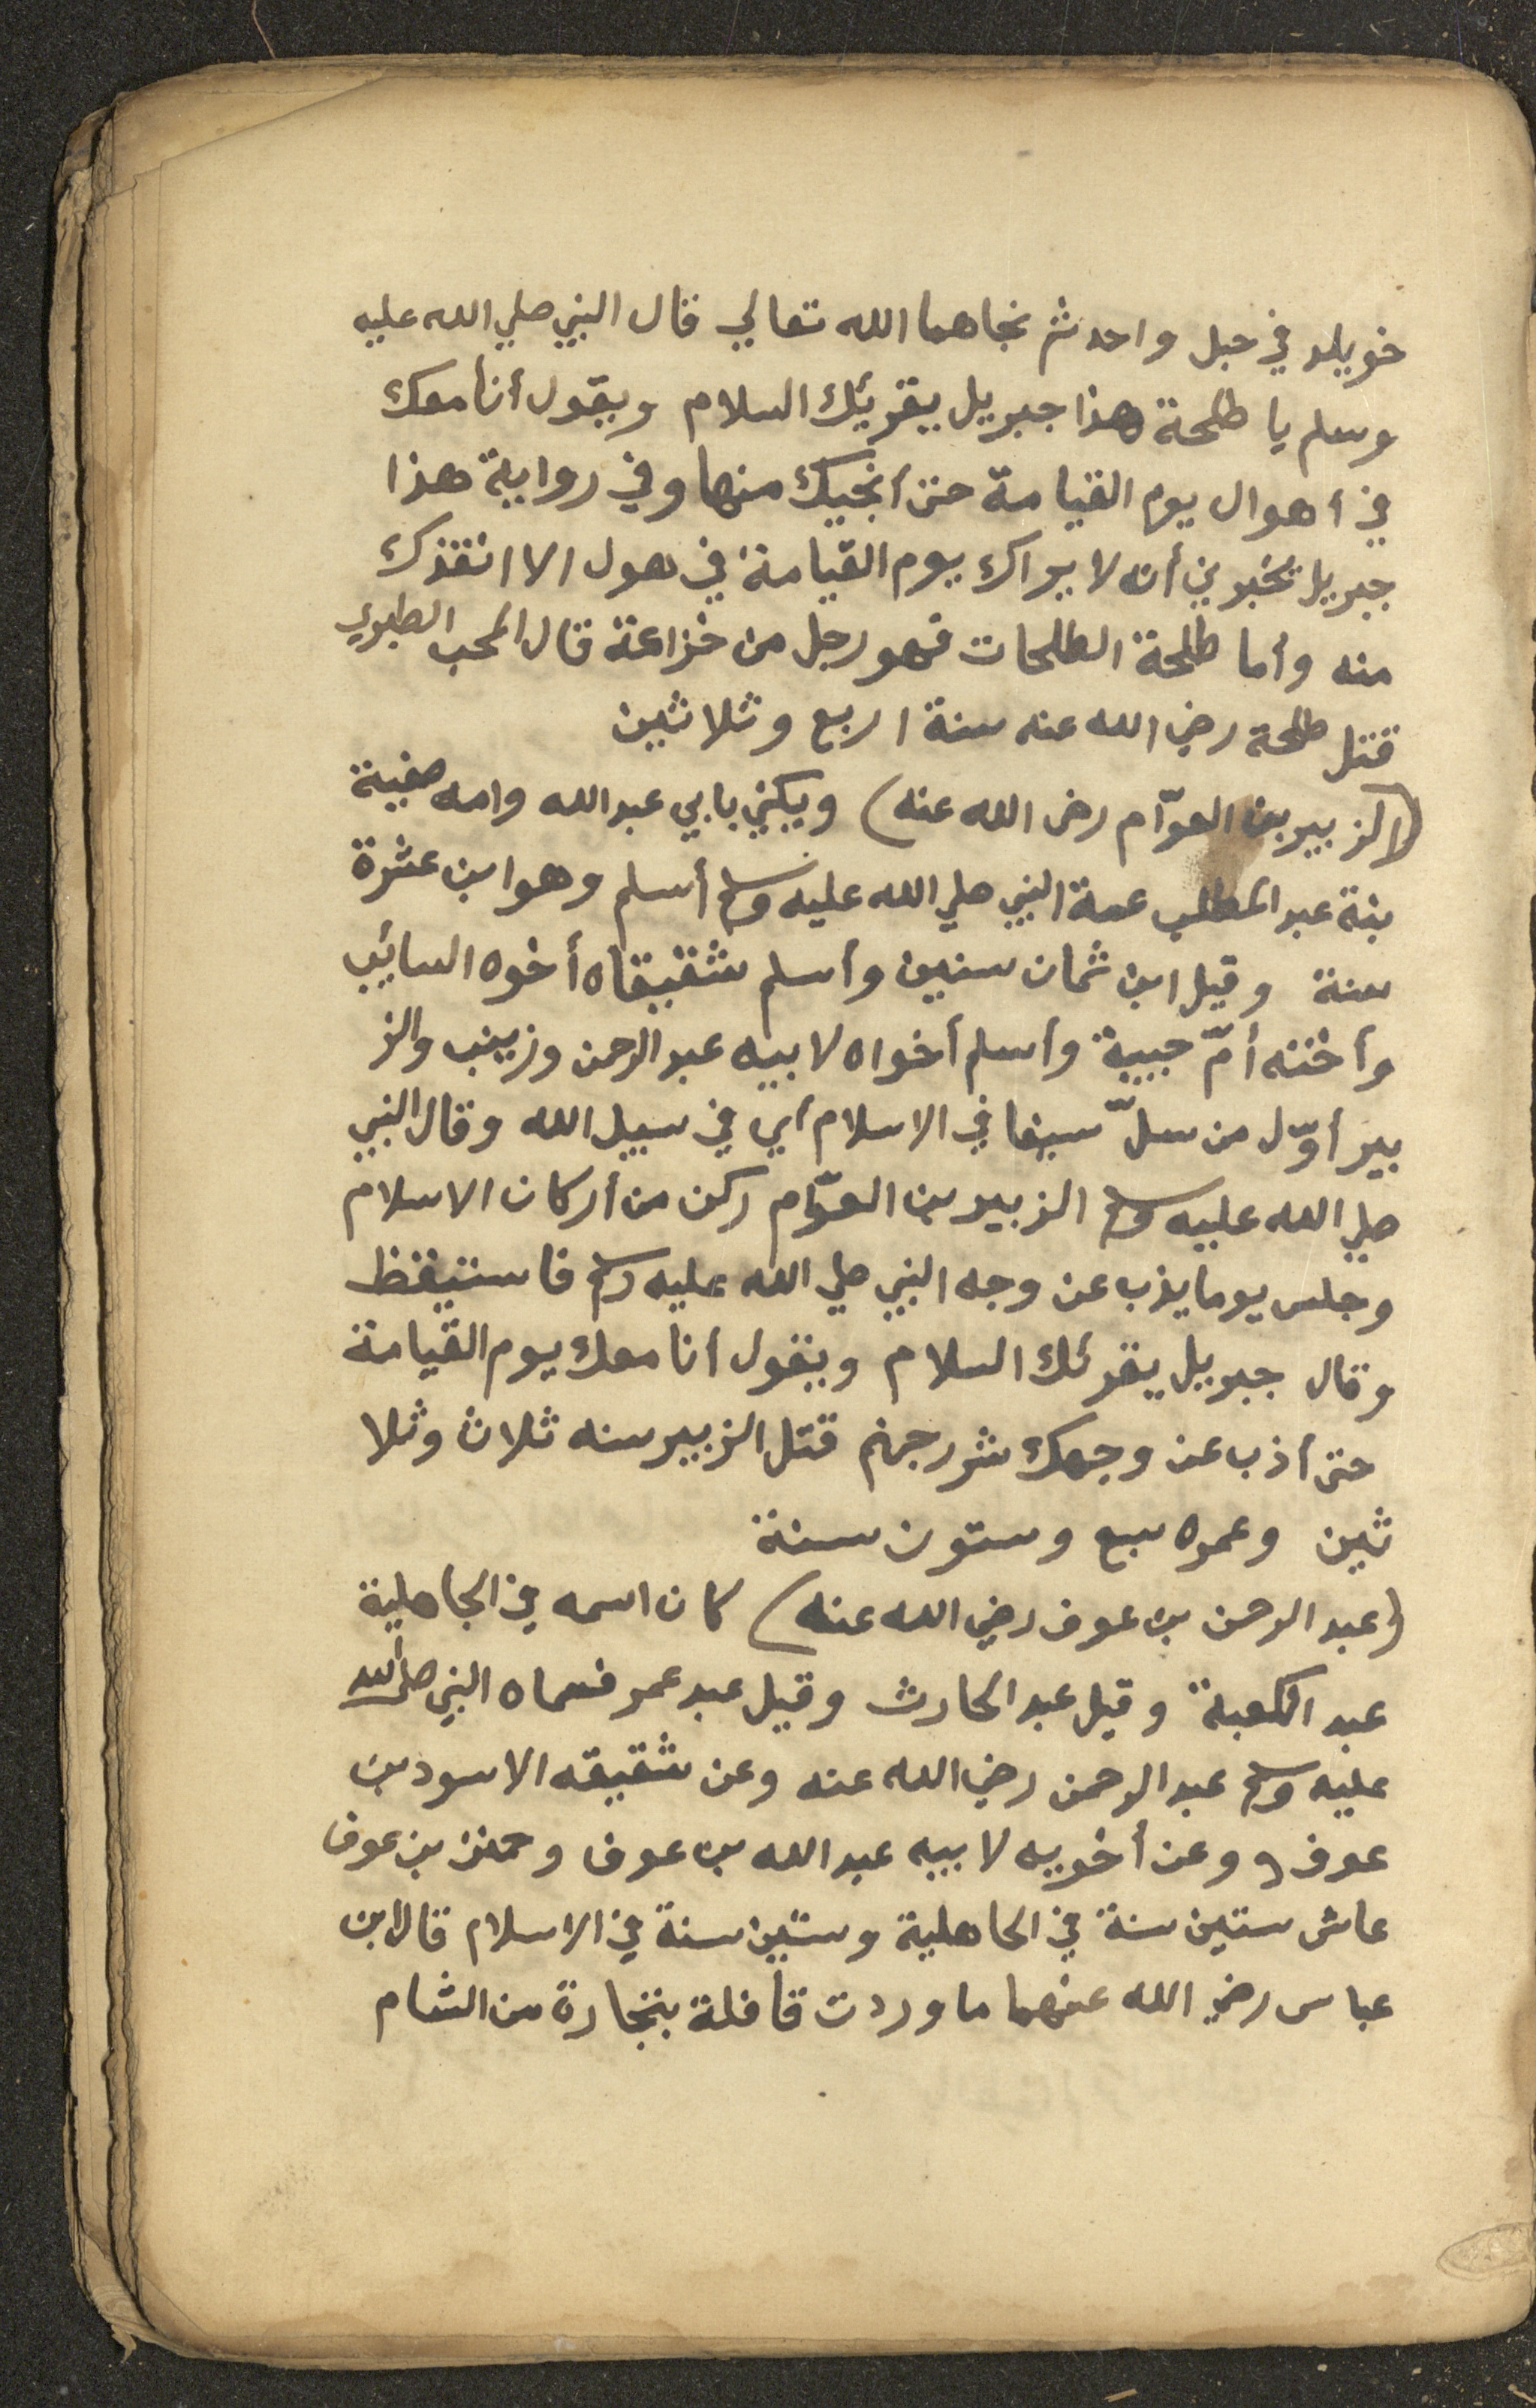 خويلد في حبل واحد ثم نجاهما الله تعالي قال النبي صلي الله عليه
وسلم يا طلحة هذا جبريل يقريك السلام ويقول أنا معك
في أهوال يوم القيامة حتى أنجيك منها وفي رواية هذا
جبريل يخبرني أنه لا يراك يوم القيامة في هول الا انقذك
منه وأما طلحة الطلحات فهو رجل من خزاعة قال المحب الطبري
قتل طلحة رضي الله عنه سنة اربع وثلاثين
(الزبير بن العوّام رضى الله عنه) ويكني بابي عبد الله وامه صفية
بنة عبد المطلب عمة النبي صلي الله عليه وسلم أسلم وهو ابن عشرة
سنة وقيل ابن ثمان سنين وأسلم شقيقاه أخوه السائب
وأخته أمّ حبيبة وأسلم أخواه لابيه عبد الرحمن وزينب والز
بير أوّل من سلّ سيفا في الاسلام أي في سبيل الله وقال النبي
صلي الله عليه وسلم الزبير بن العوّام ركن من أركان الاسلام
وجلس يوما يذب عن وجه النبي صلي الله عليه وسلم فاستيقظ
وقال جبريل يقرئك السلام ويقول أنا معك يوم القيامة
حتى أذب عن وجهك شرر جهنم قتل الزبير سنه ثلاث وثلا
ثين وعمره سبع وستون سنة
(عبد الرحمن بن عوف رضي الله عنه) كان اسمه في الجاهلية
عبد الكعبة وقيل عبد الحارث وقيل عبد عمر فسماه النبي صلى الله
عليه وسلم عبد الرحمن رضي الله عنه وعن شقيقه الاسود بن
عوف وعن أخويه لابيه عبد الله بن عوف وحمنن بن عوف
عاش ستين سنة في الجاهلية وستين سنة في الاسلام قال ابن
عباس رضي الله عنهما ما وردت قافلة بتجارة من الشام